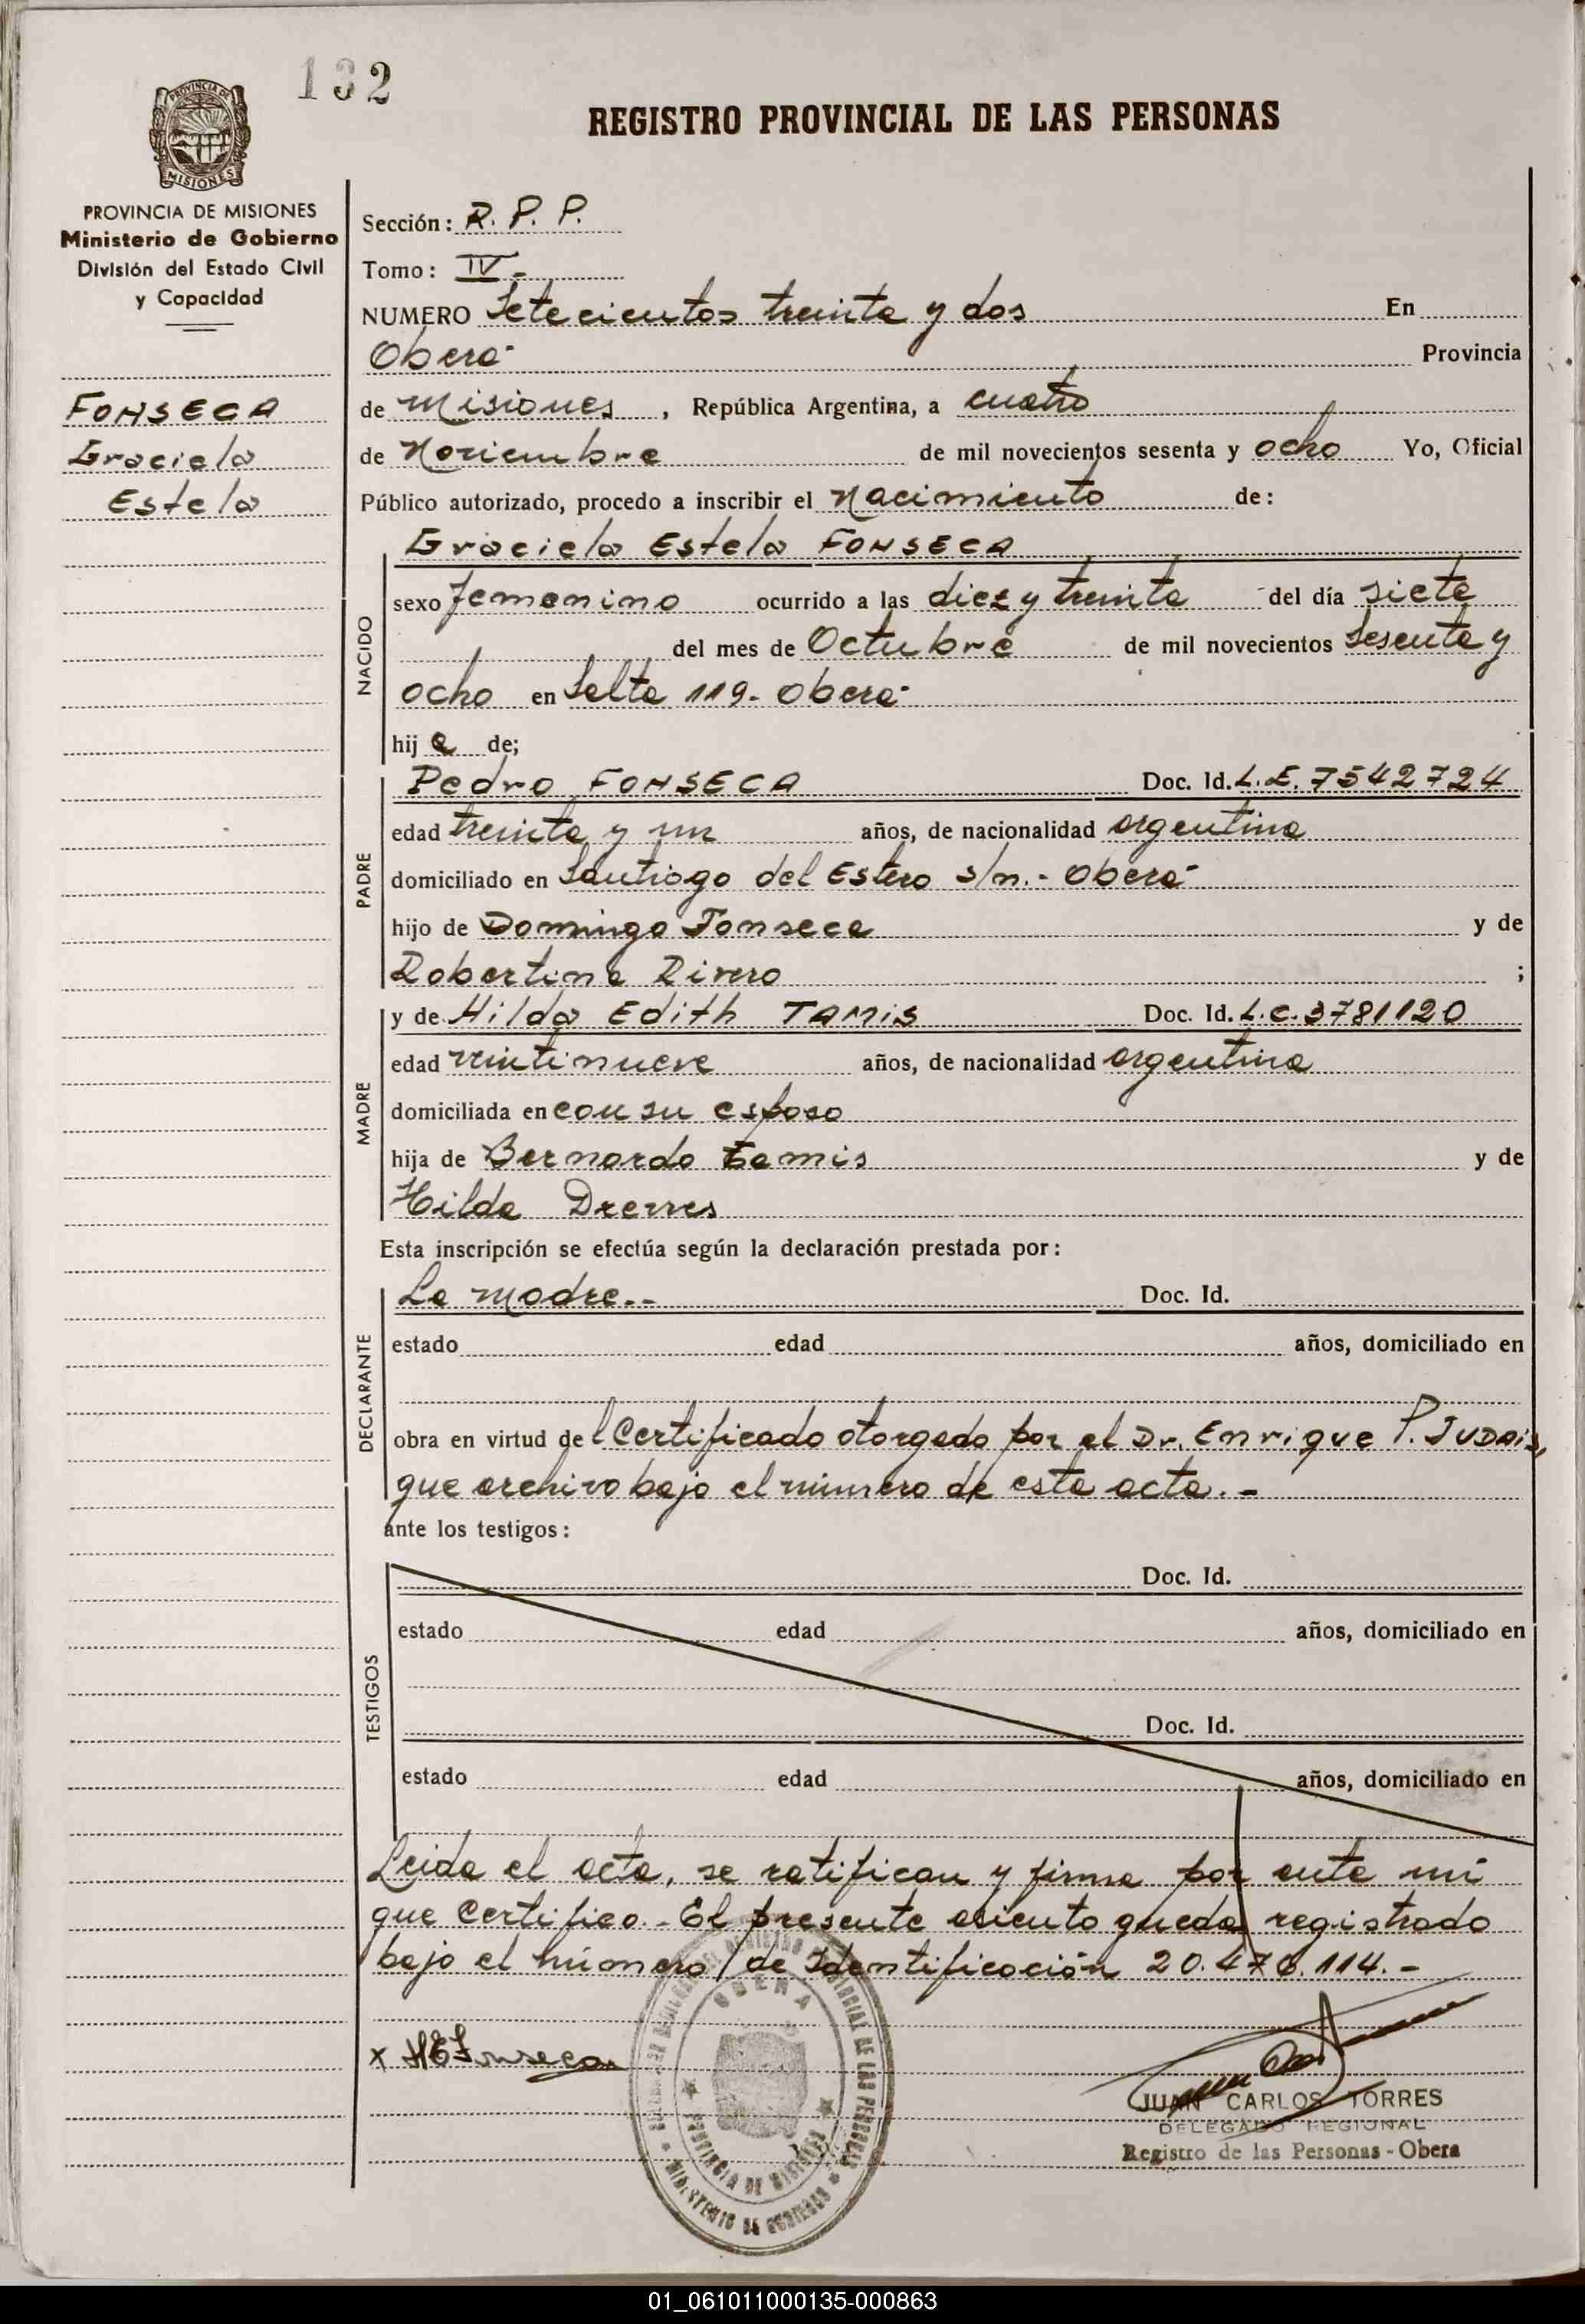 132
REGISTRO PROVINCIAL DE LAS PERSONAS
PROVINCIA DE MISIONES
PROVINCIA DE MISIONES
Ministerio de Gobierno
División del Estado Civil
y Capacidad
FONSECA
Graciela
Estela
Sección: R. P. P.
Tomo: IV-
NUMERO Setecientos treinta y dos En
Oberá
Provincia
de Misiones, República Argentina, a cuatro
de Noviembre de mil novecientos sesenta y ocho Yo, Oficial
Público autorizado, procedo a inscribir el Nacimiento de:
Graciela Estela FONSECA
NACIDO
sexo femenino ocurrido a las diez y treinta del día siete
del mes de Octubre de mil novecientos Sesenta y
ocho en Salta 119.- Oberá
hij a de;
PADRE
Pedro FONSECA Doc. Id. L.E. 7542724
edad treinta y un años, de nacionalidad argentina
domiciliado en Santiago del Estero s/n.- Oberá
hijo de Domingo Fonseca y de
Robertina Rivero ;
MADRE
y de Hilda Edith TAMIS Doc. Id. L.C. 3781120
edad veintinueve años, de nacionalidad argentina
domiciliada en con su esposo
hija de Bernardo Tamis y de
Hilda
Esta inscripción se efectúa según la declaración prestada por:
DECLARANTE
La madre.-- Doc. Id.
estado edad años, domiciliado en
obra en virtud de l Certificado otorgado por el Dr. Enrique P.
que archivo bajo el número de esta acta.-
ante los testigos:
TESTIGOS
Doc. Id.
estado edad años, domiciliado en
Doc. Id.
estado edad años, domiciliado en
Leida el acta, se ratifican y firma por ante mí
que Certifico.- El presente asiento queda registrado
bajo el número de Identificación 20.476.114.-
x HEFonseca
OBERA
PROVINCIA DE MISIONES
MINISTERIO DE GOBIERNO
JUAN CARLOS TORRES
DELEGADO REGIONAL
Registro de las Personas - Obera
01_061011000135-000863